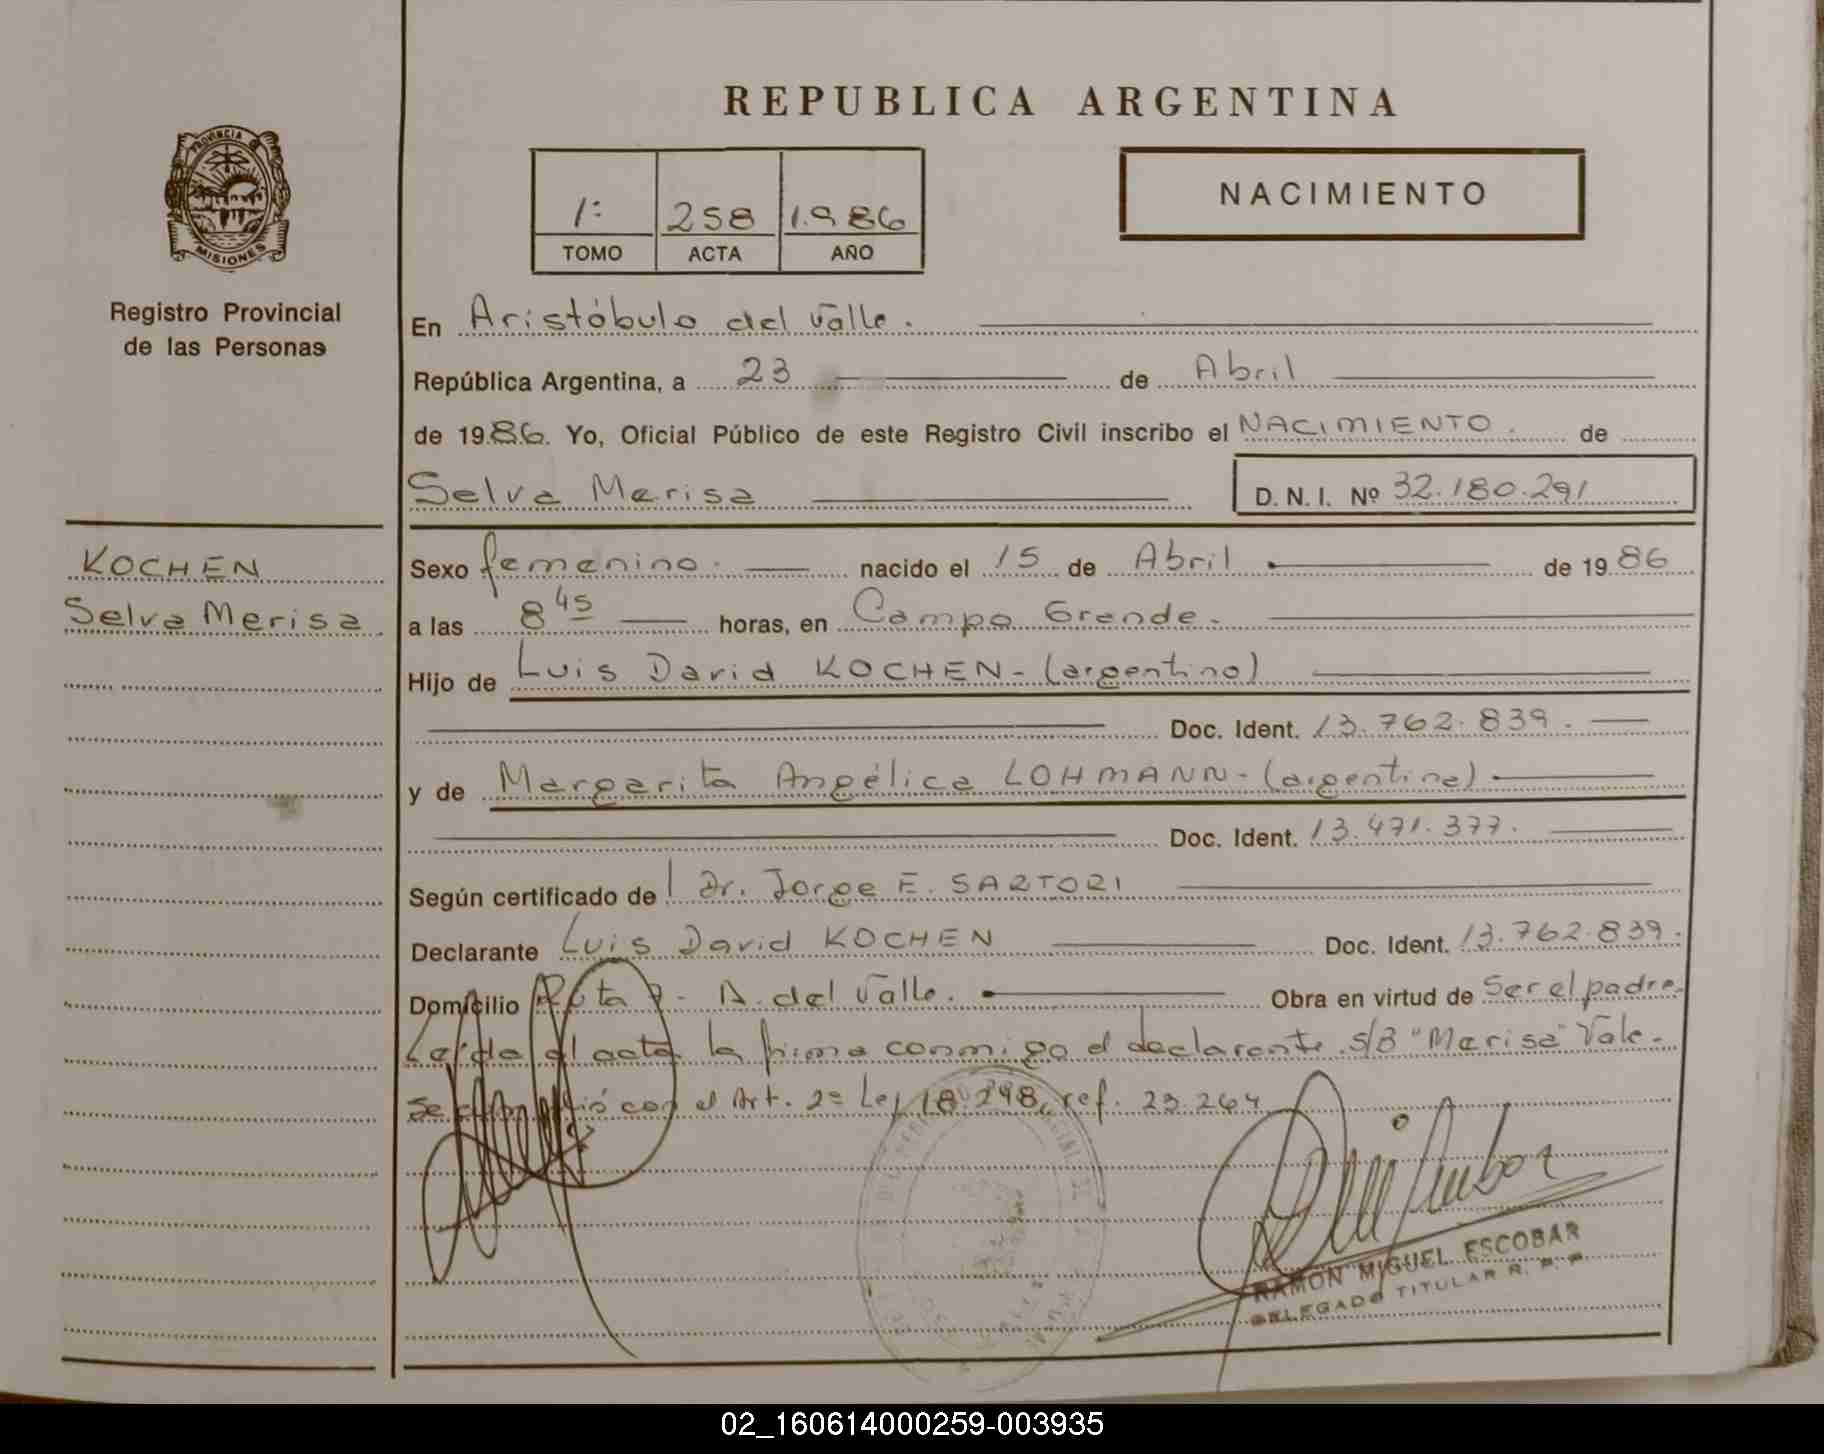 REPUBLICA ARGENTINA
PROVINCIA DE
MISIONES
Registro Provincial
de las Personas
1º 258 1.986
TOMO ACTA AÑO
NACIMIENTO
En Aristóbulo del Valle.
República Argentina, a 23 de Abril
de 1986. Yo, Oficial Público de este Registro Civil inscribo el NACIMIENTO. de
Selva Merisa D. N. I. Nº 32.180.291
KOCHEN
Selva Merisa
Sexo femenino. nacido el 15 de Abril de 1986
a las 8 45 horas, en Campo Grande.
Hijo de Luis David KOCHEN - (argentino)
Doc. Ident. 13.762.839.
y de Margarita Angélica LOHMANN - (argentina)
Doc. Ident. 13.471.377.
Según certificado de Dr. Jorge E. SARTORI
Declarante Luis David KOCHEN Doc. Ident. 13.762.839.
Domicilio Ruta 7 - A. del Valle. Obra en virtud de Ser el padre.
Leída el acta la firma conmigo el declarante. S/B "Merisa" Vale.
Se con el Art. 2º Ley 18.248, ref. 23.264
RAMON MIGUEL ESCOBAR
DELEGADO TITULAR R. P. P.
02_160614000259-003935